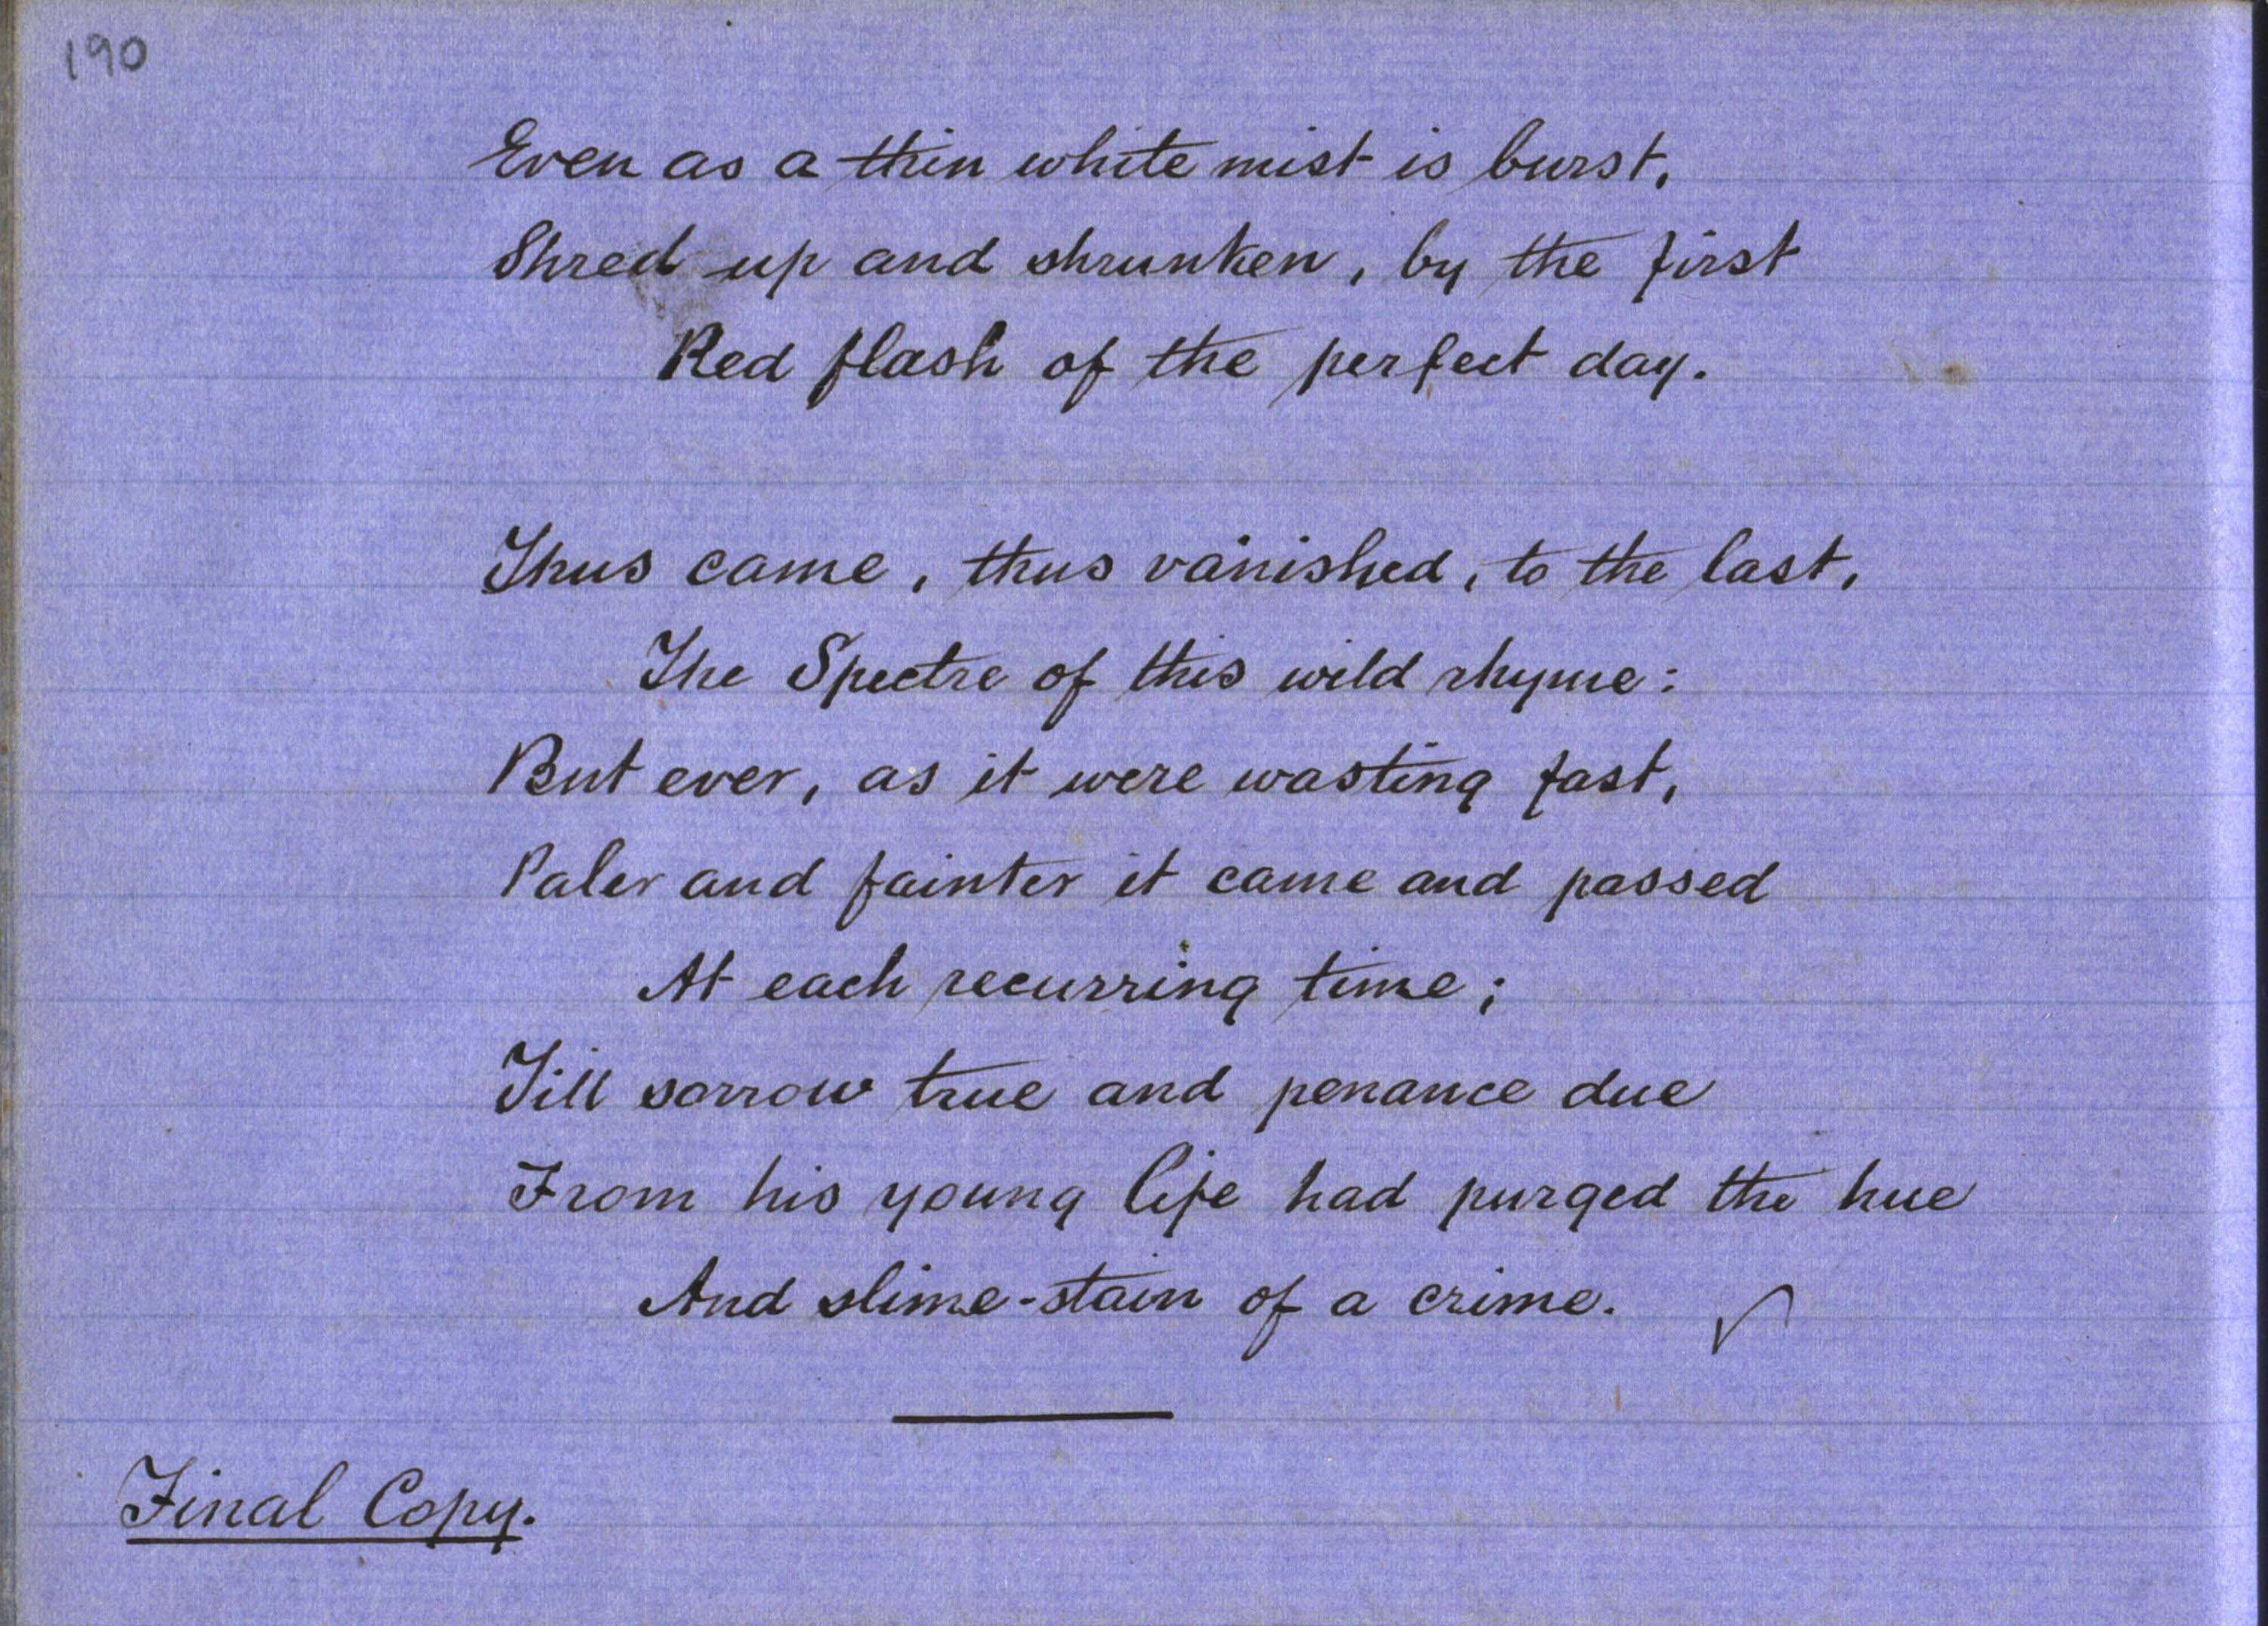 190
Even as a thin white mist is burst,
Shred up and shrunken, by the first
Red flash of the perfect day.
Thus came, thus vanished, to the last,
The Spectre of this wild rhyme:
But ever, as it were wasting fast,
Paler and fainter it came and passed
At each recurring time;
Till sorrow true and penance due
From his young life had purged the hue
And slime-stain of a crime.
Final Copy.